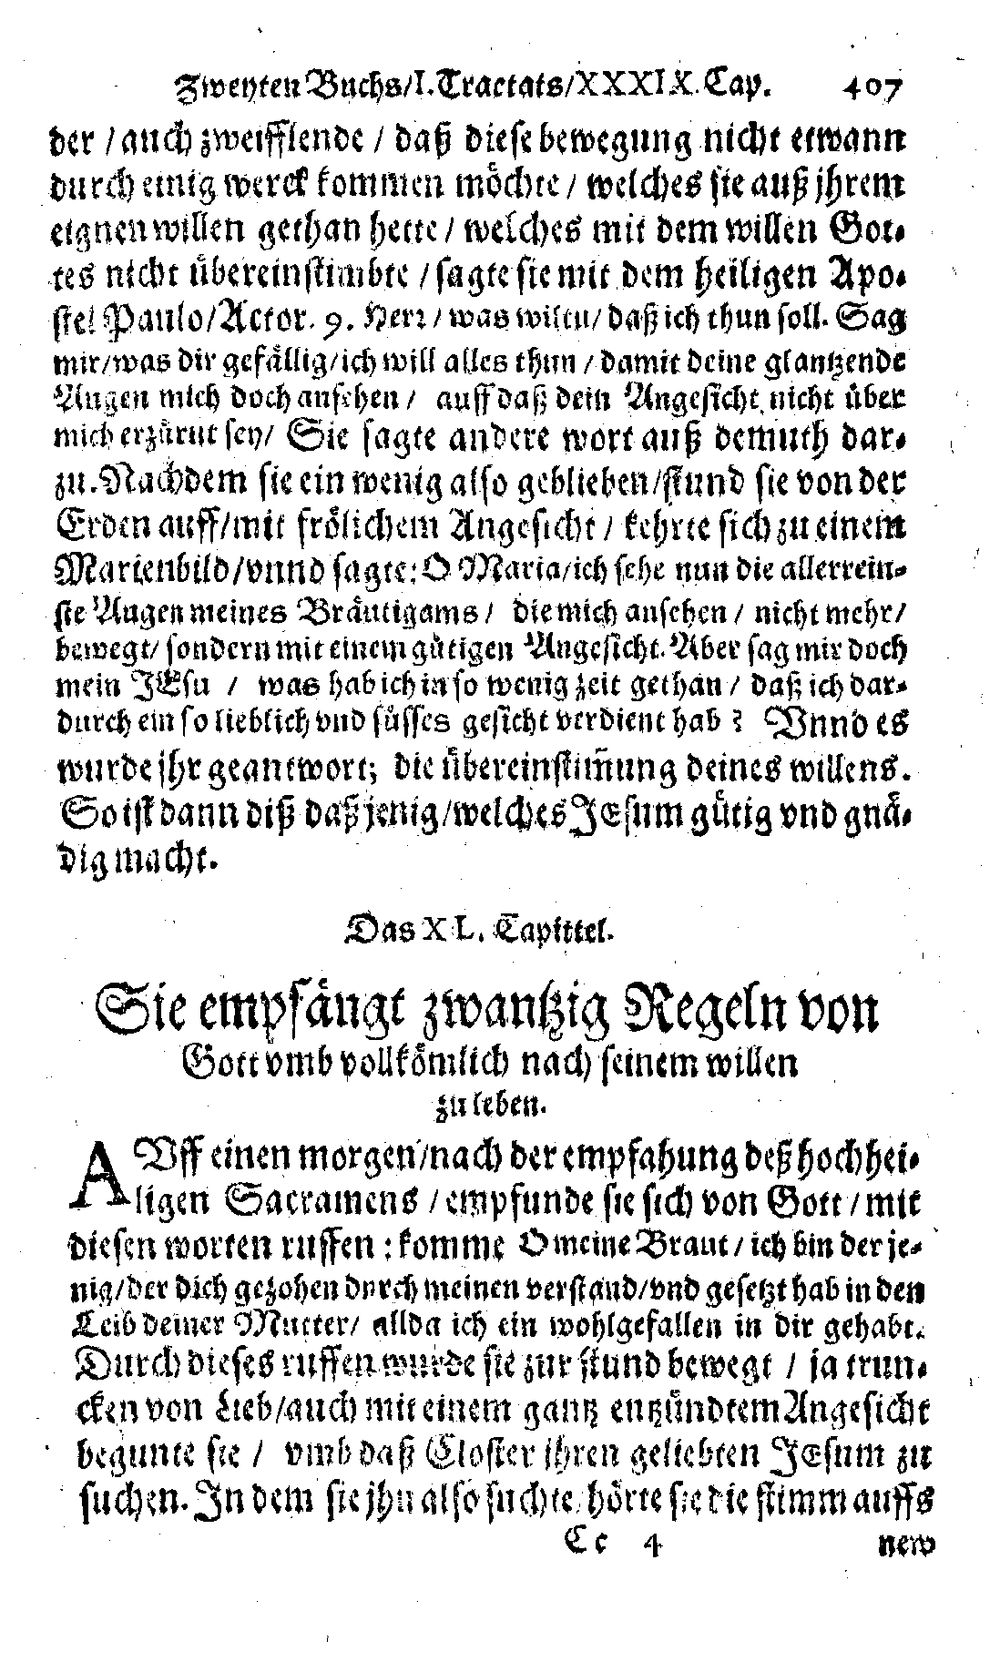 Zweyten Buchs/I. Tractats/XXXIX. Cap. 407
der / auch zweifflende / daß diese bewegung nicht etwann
durch einig werck kommen möchte / welches sie auß jhrem
eignen willen gethan hette / welches mit dem willen Got-
tes nicht übereinstimbte / sagte sie mit dem heiligen Apo-
stel Paulo/Actor. 9. Herr / was wiltu / daß ich thun soll. Sag
mir/was dir gefällig/ich will alles thun / damit deine glantzende
Augen mich doch ansehen / auff daß dein Angesicht nicht über
mich erzürnt sey/ Sie sagte andere wort auß demuth dar-
zu. Nachdem sie ein wenig also geblieben/stund sie von der
Erden auff/mit frölichem Angesicht / kehrte sich zu einem
Marienbild/vnnd sagte: O Maria/ich sehe nun die allerrein-
ste Augen meines Bräutigams / die mich ansehen / nicht mehr/
bewegt/ sondern mit einem gütigen Angesicht. Aber sag mir doch
mein JEsu / was hab ich in so wenig zeit gethan / daß ich dar-
durch ein so lieblich vnd süsses gesicht verdient hab? Vnnd es
wurde jhr geantwort; die übereinstim̃ung deines willens.
So ist dann diß daßjenig/welches JEsum gütig vnd gnä-
dig macht.
Das XL. Capittel.
Sie empfängt zwantzig Regeln von
Gott vmb vollkömlich nach seinem willen
zu leben.
AVff einen morgen/nach der empfahung deß hochhei-
ligen Sacramens / empfunde sie sich von Gott / mit
diesen worten ruffen: komme O meine Braut / ich bin der je-
nig/der dich gezohen durch meinen verstand/vnd gesetzt hab in den
Leib deiner Mutter/ allda ich ein wohlgefallen in dir gehabt.
Durch dieses ruffen wurde sie zur stund bewegt / ja trun-
cken von Lieb/auch mit einem gantz entzündtem Angesicht
begunte sie / vmb daß Closter jhren geliebten JEsum zu
suchen. In dem sie jhn also suchte, hörte sie die stimm auffs
Cc 4 new